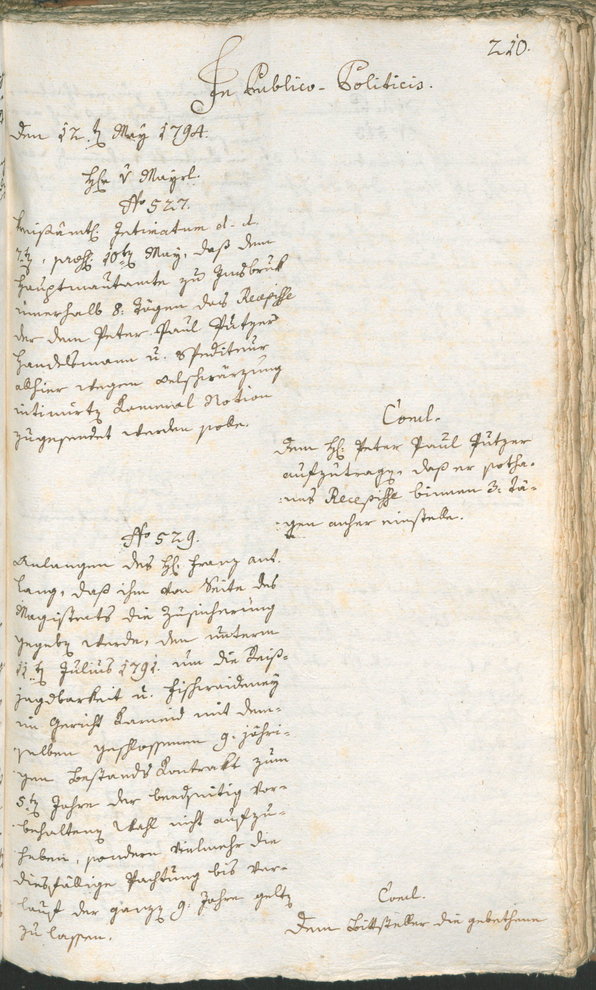 210.
In Publico-Politicis.
Den 12.t May 1794.
H. v Mayrl.
No 527.
Kreisämtl. Intimatum d. d.
7.t, praes. 10t May, daß dem
Hauptmautamte zu Insbruk
innerhalb 8: Tägen das Recepisse
der dem Peter Paul Putzer
Handelsmann u. Spediteur
alhier wegen Oelschwärzung
intimirten Kameral Notion
zugesendet werden solle.
Concl.
Dem H. Peter Paul Putzer
aufzutragen, daß er sotha-
nes Recepisse binnen 3: Tä-
gen anher einstelle.
No 529.
Anlangen des H. Franz Ant.
Lang, daß ihm von Seite des
Magistrats die Zusicherung
gegeben werde, den unterm
11.t Julius 1791. um die Reiß-
jagdbarkeit u. Fischwaideney
im Gericht Karneid mit dem-
selben geschlossenen 9. jähri-
gen Bestands Kontrakt zum
5.t Jahre der beedseitig vor-
behaltenen Wahl nicht aufzu-
heben, sondern vielmehr die
diesfällige Pachtung bis Ver-
lauf der ganzen 9. Jahre gelten
zu lassen.
Concl.
Dem Bittsteller die gebethene